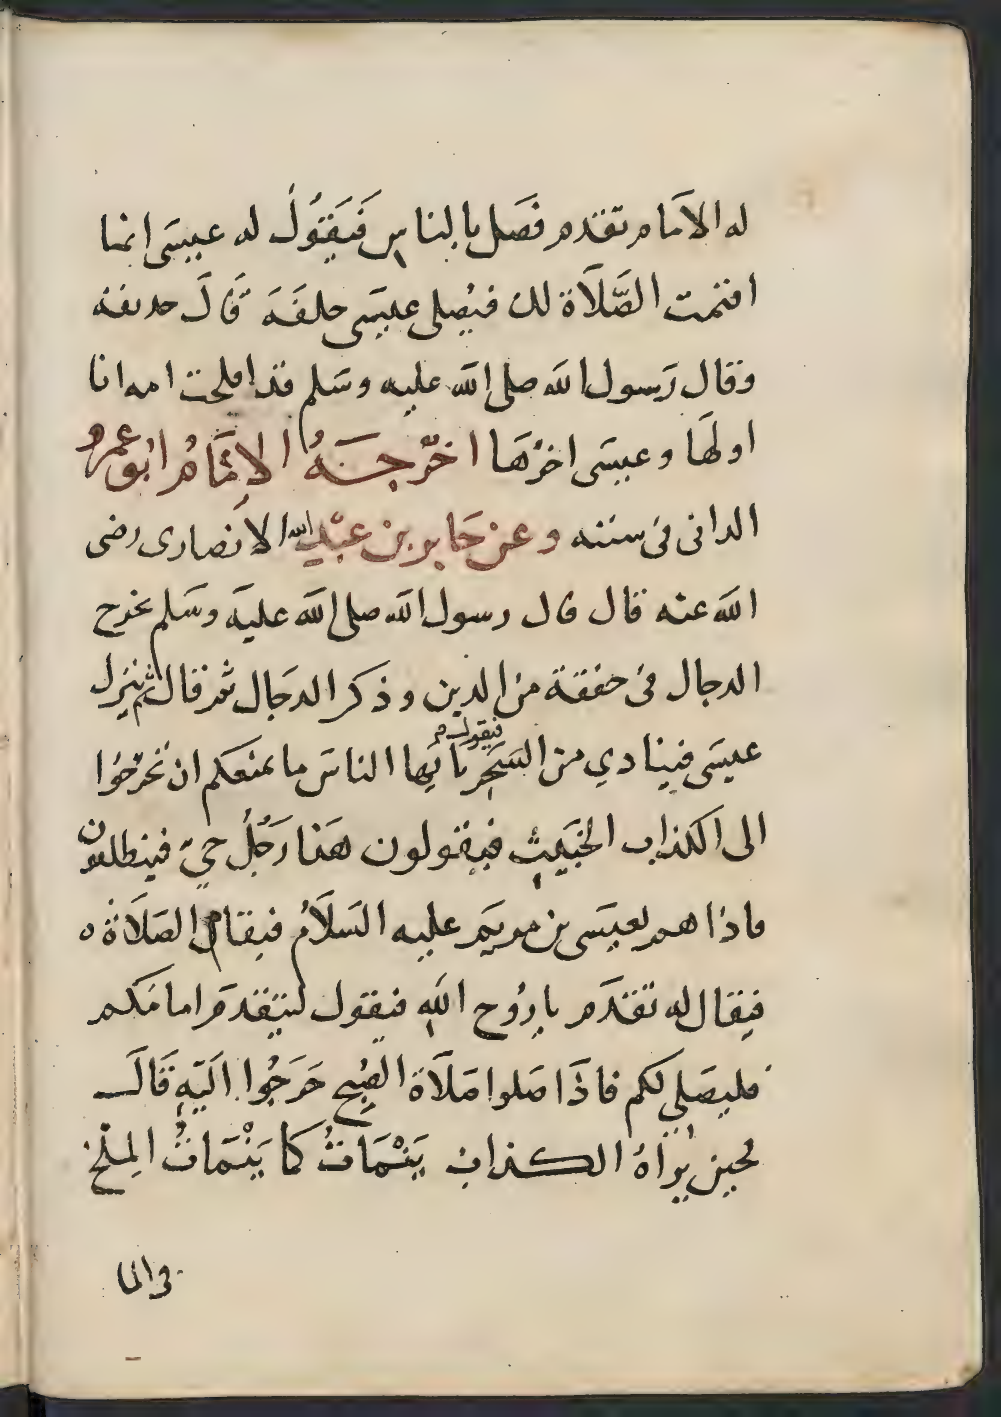 له الامام تقدم فصل بالناس فَيَقُولُ له عيسَى انما
اقيمت الصَّلَاة لك فيُصلى عيسَى خلفَهَ قَالَ حذيفة
وقال رَسول الله صلى الله عليه وسَلم قد افلحت امه انا
اولهَا وعيسَى اخرُهَا اخرَّجَهُ الامَامُ ابُو عمرو
الدانى فى سننه وعن جَابر بن عَبْد الله الانصارى رضى
الله عنه قال قال رسول الله صلى الله عليَه وسَلم يخرج
الدجال فى خفقة من الدين وذكر الدجَال ثم قال ثم ينزل
عيسَى فينادي من السَحَر فيقول يا ايها الناسَ ما يمنعكم ان تخرجوُا
الى الكذاب الخبَيث فيقولون هَذا رَجُلٌ حيّ فينطلقون
فاذا هم بعيسَى بن مريَم عليه السَلَامُ فيقام الصَلَاةُ ه
فيقال له تقدَم يا رُوح اللهِ فيقول ليتقدمَ امامَكم
فليصَلي لكم فاذَا صَلوا صَلَاةَ الصُبح خَرَجُوا اليَهِ قَالَ
فحين يَراهُ الكذاب يَنْمَاثُ كما يَنْمَاثُ المِلْحُ
فى الما